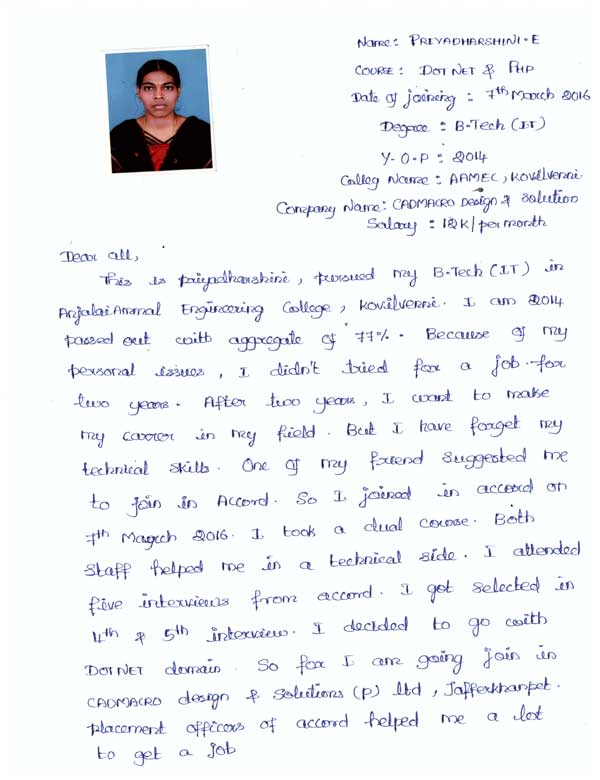 Name: PRIYADHARSHINI.E
COURSE: DOT NET & PHP
Date of joining: 7th March 2016
Degree: B-Tech (IT)
Y-O-P: 2014
Colleg Name: AAMEC, Kovilvenni.
Company Name: CADMACRO Design & Solution
Salary: 12K/per month
Dear all,
This is priyadharshini, pursued my B-Tech (IT) in
Anjalai Ammal Engineering College, Kovilvenni. I am 2014
passed out with aggregate of 77%. Because of my
personal issues, I didn't tried for a job for
two years. After two years, I want to make
my career in my field. But I have forget my
technical skills. One of my friend suggested me
to join in Accord. So I joined in accord on
7th March 2016. I took a dual course. Both
staff helped me in a technical side. I attended
five interviews from accord. I got selected in
4th & 5th interview. I decided to go with
DOTNET domain. So for I am going join in
CADMACRO design & Solutions (P) ltd, Jafferkhanpet.
placement officers of accord helped me a lot
to get a job